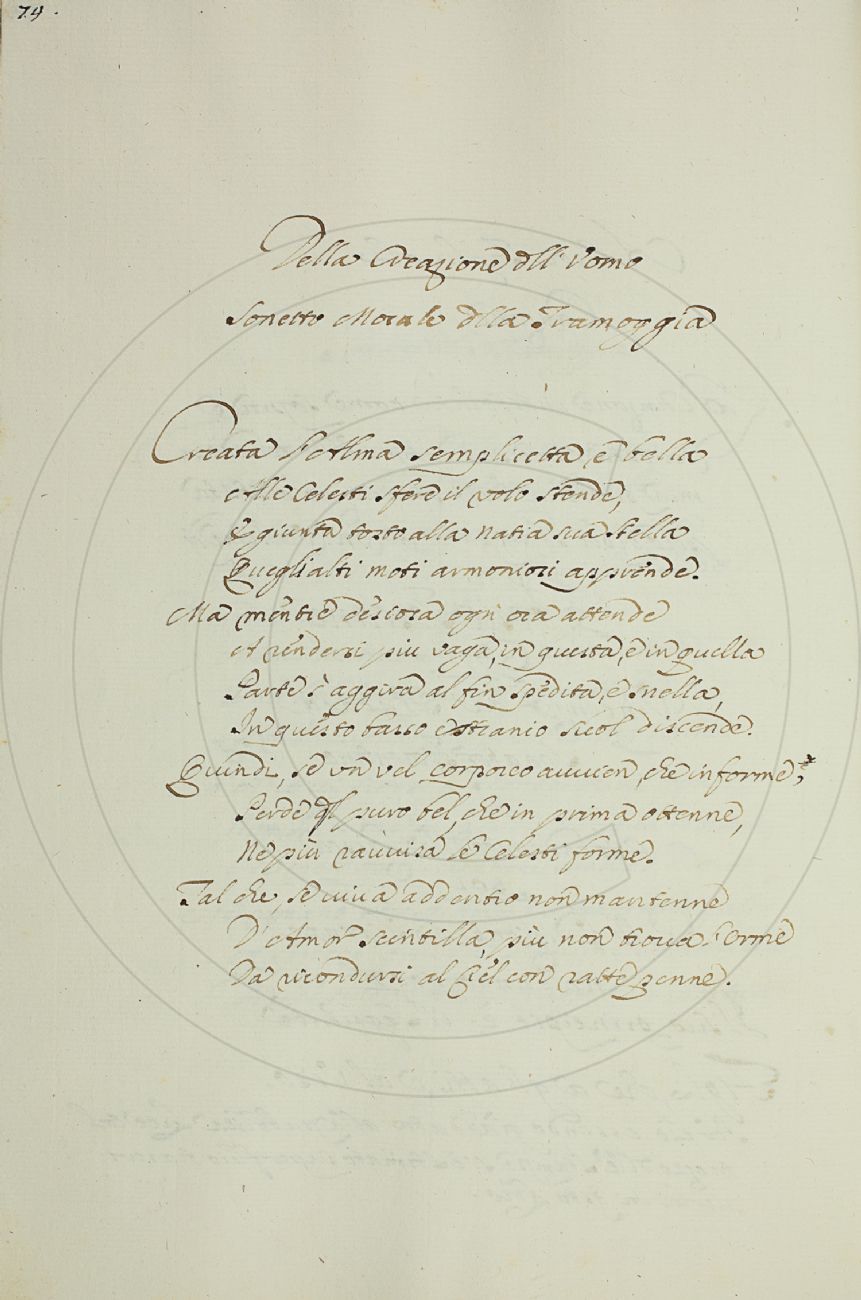 74.
Della Creazione dell' Uomo
Sonetto Morale della Tramoggia
Creata l'Alma semplicetta, e bella
Alle Celesti sfere il volo stende,
E giunta tosto alla natia sua stella
Quegli alti moti armoniosi apprende.
Ma mentre d'essora ogn' ora attende
A rendersi più vaga, in questa, e in quella
Parte s'aggira al fin spedita, e snella,
In questo basso estranio suol discende.
Quindi, se un vel corporeo avvien, che informe,
Perde ql puro bel, che in prima ottenne,
Ne più ravvisa le Celesti forme.
Tal che, se viva addentro non mantenne
D'Amor scintilla, più non trova l'orme
Da ricondursi al Ciel con ratte penne.